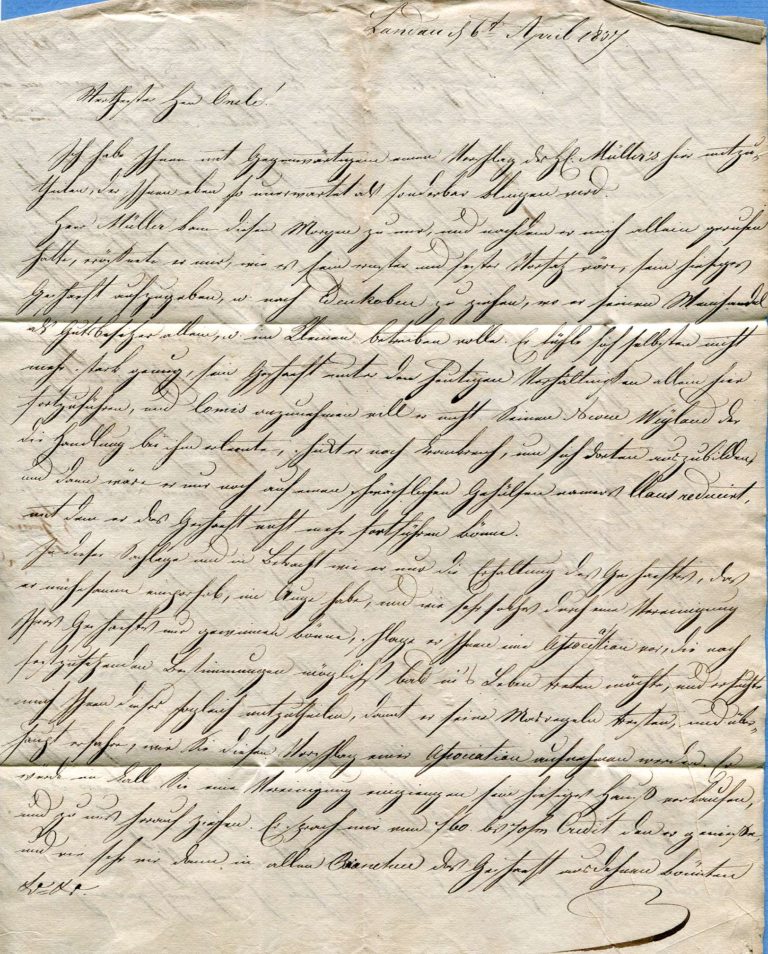 Landau d 6t April 1837
Werthester Herr Onele!
Ich habe Ihnen mit Gegenwärtigem einen Vorschlag des H. Müller's hier mitzu-
theilen, der Ihnen eben so unerwartet als sonderbar klingen wird.
Herr Müller kam diesen Morgen zu mir, und nachdem er mich allein gerufen
hatte, eröffnete er mir, wie es sein ernster und fester Vorsatz wäre, sein hiesiges
Geschaeft aufzugeben, u. nach Edenkoben zu ziehen, wo er seinen Weinhandel
als Gutsbesitzer allein, u. im Kleinen betreiben wolle. Er fühle sich selbsten nicht
mehr stark genug, sein Geschaeft unter den heutigen Verhältnissen allein hier
fortzuführen, und Comis anzunehmen will er nicht. Seinen Weyland der
die Handlung bei ihm erlernte, schickt er nach Frankreich, um sich dorten auszubilden,
und dann wäre er nur noch auf einen schwächlichen Gehülfen namens Claus reducirt,
mit dem er das Geschaeft nicht mehr fortführen könne.
In dieser Sachlage und in Betracht wie er nur die Erhaltung des Geschaeftes, das
er mühesam emporhob, im Auge habe, und wie sehr solches durch eine Vereinigung
Ihres Geschaeftes nur gewinnen könne, schlage er Ihnen eine Association vor, die nach
festzusetzenden Bestimmungen möglichst bald in's Leben treten möchte, und ersuchte
mich Ihnen dieses sogleich mitzutheilen, damit er seine Masregeln treffen, und über-
haupt erfahre, wie Sie diesen Vorschlag einer Association aufnehmen werden. Er
würde im Fall Sie eine Vereinigung eingiengen, sein hiesiges Hauß verkaufen,
und zu uns herauf ziehen. Er sprach mir von f60 bis 70/m Credit den er geniesse,
und wie sehr wir dann in allen Branchen das Geschaeft ausdehnen könnten